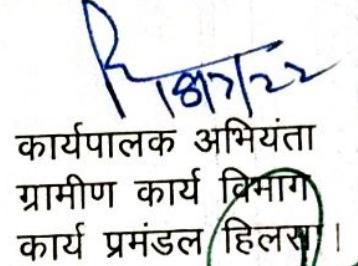 कार्यपालक अभियंता
ग्रामीण कार्य विभाग
कार्य प्रमंडल हिलसा।